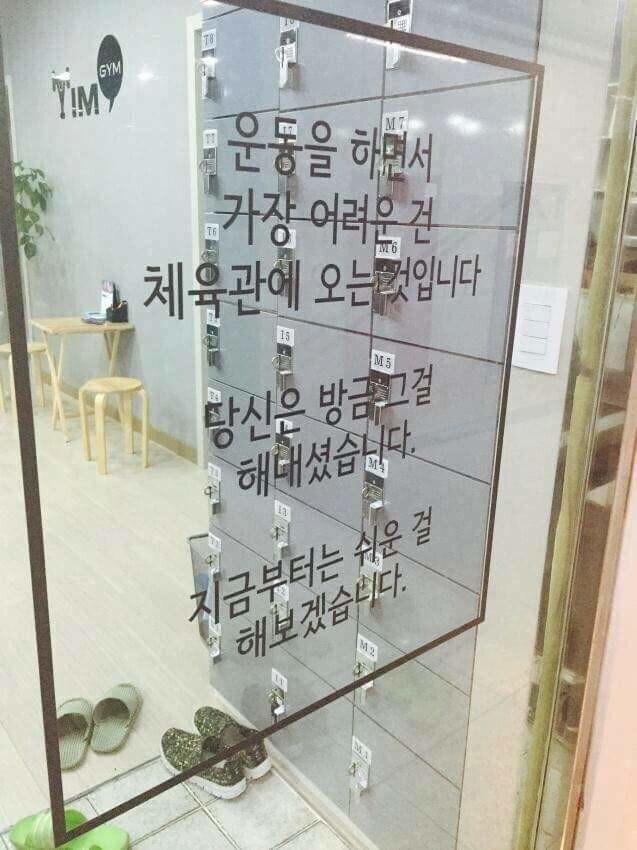 TiM GYM
운동을 하면서
가장 어려운 건
체육관에 오는 것입니다
당신은 방금 그걸
해내셨습니다.
지금부터는 쉬운 걸
해보겠습니다.
T8
M7
T6
M6
I5
M5
M4
I3
M2
M1